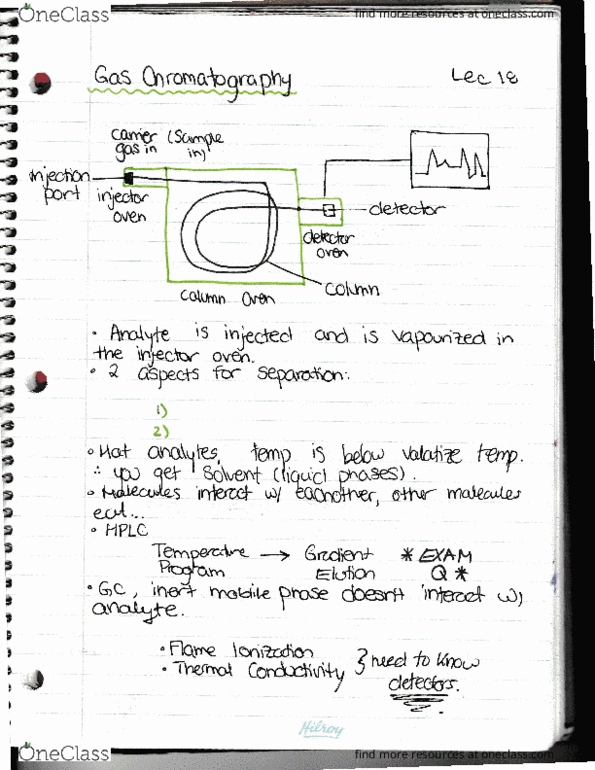 OneClass
find more resources at oneclass.com
Gas Chromatography
Lec 18
carrier (Sample
gas in in)
injection
port
injector
oven
detector
detector
oven
column
column oven
• Analyte is injected and is vapourized in
the injector oven.
• 2 aspects for separation:
1)
2)
• Hot analytes, temp is below valatize temp.
∴ you get solvent (liquid phases).
• Molecules interact w/ eachother, other molecules
ect...
• HPLC
Temperature → Gradient * EXAM
Program Elution Q *
• GC, inert mobile phase doesn't interact w/
analyte.
• Flame Ionization
• Thermal Conductivity } need to know
detectors.
Hilroy
OneClass
find more resources at oneclass.com